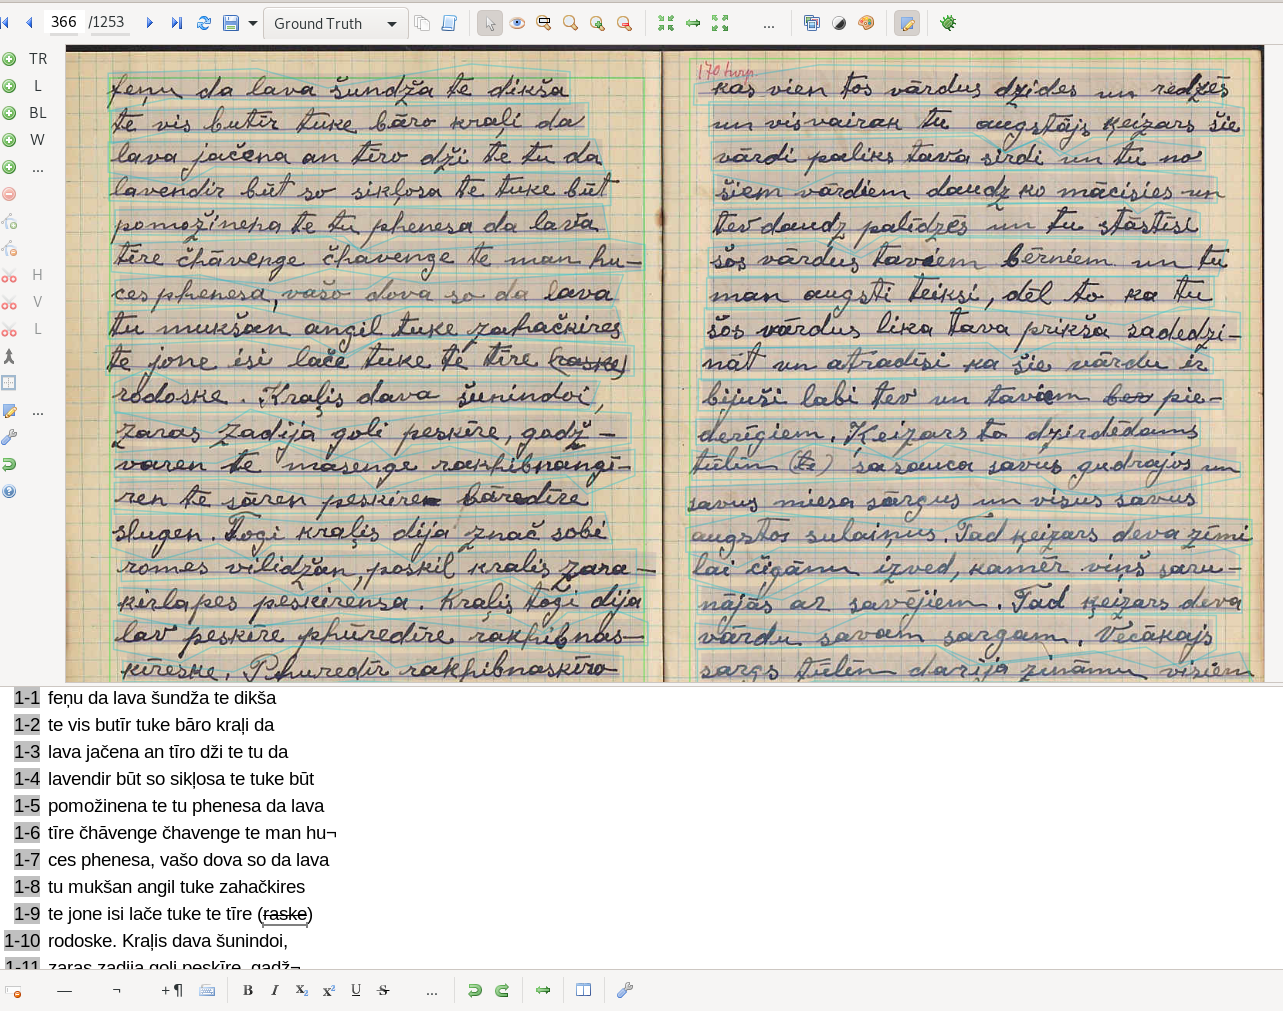 366 /1253 Ground Truth ...
TR
L
BL
W
...
H
V
L
...
feņu da lava šundža te dikša
te vis butīr tuke bāro kraļi da
lava jačena an tīro dži te tu da
lavendir būt so sikļosa te tuke būt
pomožinena te tu phenesa da lava
tīre čhāvenge čhavenge te man hu-
ces phenesa, vašo dova so da lava
tu mukšan angil tuke zahačkires
te jone isi lače tuke te tīre (raske)
rodoske. Kraļis dava šunindoi,
zaras zadija goli peskīre, godž-
varen te masenge rakhibnangī-
ren te sāren peskīre bāredīre
slugen. Togi kraļis dija znač sobi
romes vilidžan, poskil kraļis zara-
kirlapes peskirensa. Kraļis togi dija
lav peskīre phūredīre rakhibnas-
kīreske. Phuredīr rakhibnaskīro
170 turp.
kas vien tos vārdus dzides un redzēs
un visvairak tu augstājs ķeizars šie
vārdi paliks tava sirdi un tu no
šiem vārdiem daudz ko mācisies un
tev daudz palīdzēs un tu stāstīsi
šos vārdus taviem bērniem un tu
man augsti teiksi, dēl to ka tu
šos vārdus lika tava prikša sadedzi-
nāt un atradīsi ka šie vārdu ir
bijuši labi tev un taviem ber pie-
derīgiem. Ķeizars to dzirdēdams
tūlīn (te) sasauca savus gudrajos un
savus miesa sārgus un visus savus
augstos sulaiņus. Tad ķeizars deva zīmi
lai čigānu izved, kamēr viņš saru-
nājās ar savējiem. Tad ķeizars deva
vārdu savam sargam. Vēcākajs
sargs tūlīn darija zināmu visiem
1-1 feņu da lava šundža te dikša
1-2 te vis butīr tuke bāro kraļi da
1-3 lava jačena an tīro dži te tu da
1-4 lavendir būt so sikļosa te tuke būt
1-5 pomožinena te tu phenesa da lava
1-6 tīre čhāvenge čhavenge te man hu¬
1-7 ces phenesa, vašo dova so da lava
1-8 tu mukšan angil tuke zahačkires
1-9 te jone isi lače tuke te tīre (raske)
1-10 rodoske. Kraļis dava šunindoi,
1-11 zaras zadija goli peskīre, gadž¬
— ¬ +¶ B I X₂ X² U S ...